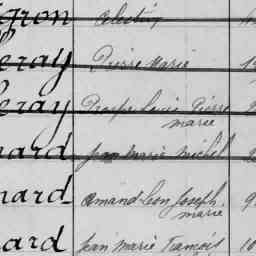 gron Celestin
eray Pierre Marie
eray Prosper Louis Pierre
marie
nard Jean Marie Michel
nard Armand Leon Joseph
marie
nard Jean Marie François 10